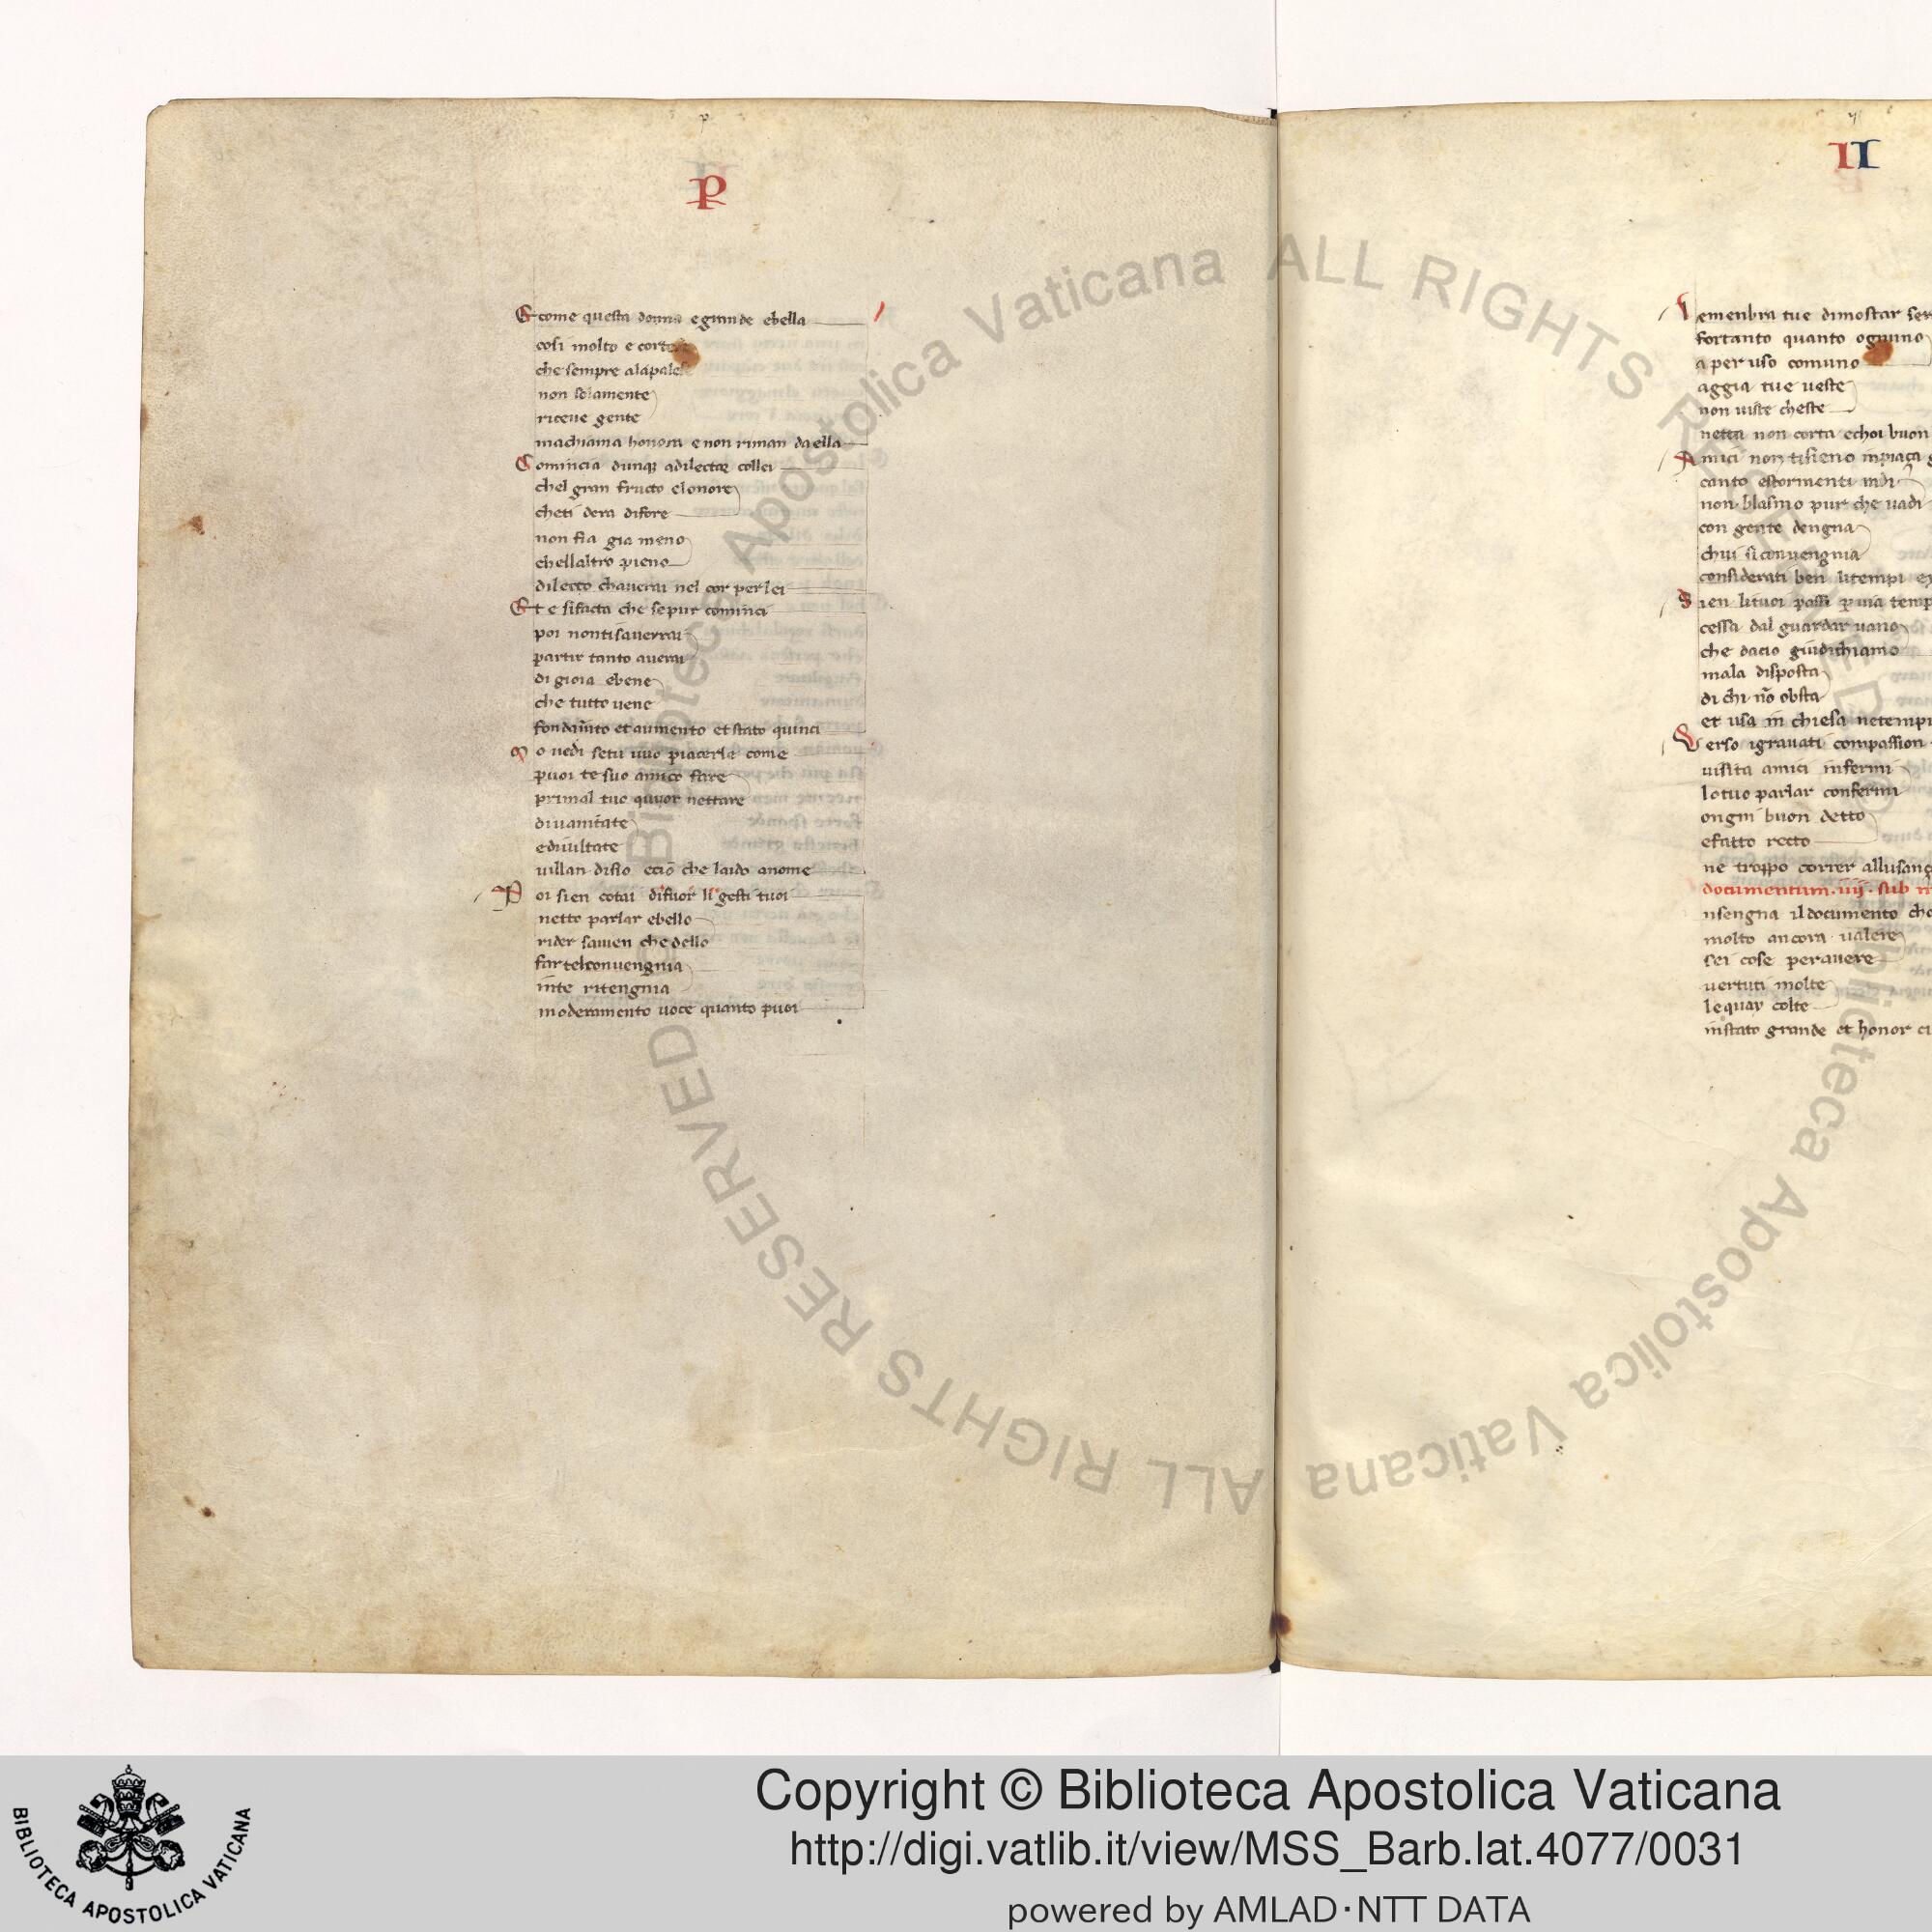 P
Et come questa donna e grande ebella
cosi molto e cortese
che sempre alapalese
non solamente
riceue gente
machiama honora enon riman daella
Comincia dunq; adilectar collei
chel gran fructo elonore
cheti dera difore
non fia gia meno
chellaltro pieno
dilecto chauerai nel cor per lei
Et e sifacta che sepur cominci
poi nontisauerrai
partir tanto auerai
di gioia ebene
che tutto uene
fondam̅to et aumento et stato quinci
o uedi setu uuo piacerle come
puoi te suo amico fare
primal tuo quor nettare
diuanitate
ediuiltate
uillan disio ecio che laido anome
Poi sien cotai difuor li gesti tuoi
netto parlar ebello
rider sauien chedello
far telconuengnia
inte ritengnia
moderamento uoce quanto puoi
II
Lemenbra tue dimostar
fortanto quanto ognuno
aper uso comuno
aggia tue ueste
non uiste cheste
netta non corta echoi buon
Amici non tisieno inpiaça
canto estormenti
non blasmo pur che uadi
con gente dengna
chui siconuengnia
considerati ben litempi
Sien lituoi passi p uia
cessa dal guardar uano
che dacio giudichiamo
mala disposta
di chi no̅ obsta
et usa in chiesa netempi
Verso igrauati compassion
uisita amici infermi
lotuo parlar confermi
ongni buon detto
efatto recto
ne troppo correr allusanç
documentum . iiij . sub
nsengna il documento
molto ancora ualere
sei cose perauere
uertuti molte
lequay colte
instato grande et honor
Biblioteca Apostolica Vaticana ALL RIGHTS RESERVED ©
Biblioteca Apostolica Vaticana ALL RIGHTS RESERVED
BIBLIOTECA APOSTOLICA VATICANA
Copyright © Biblioteca Apostolica Vaticana
http://digi.vatlib.it/view/MSS_Barb.lat.4077/0031
powered by AMLAD·NTT DATA